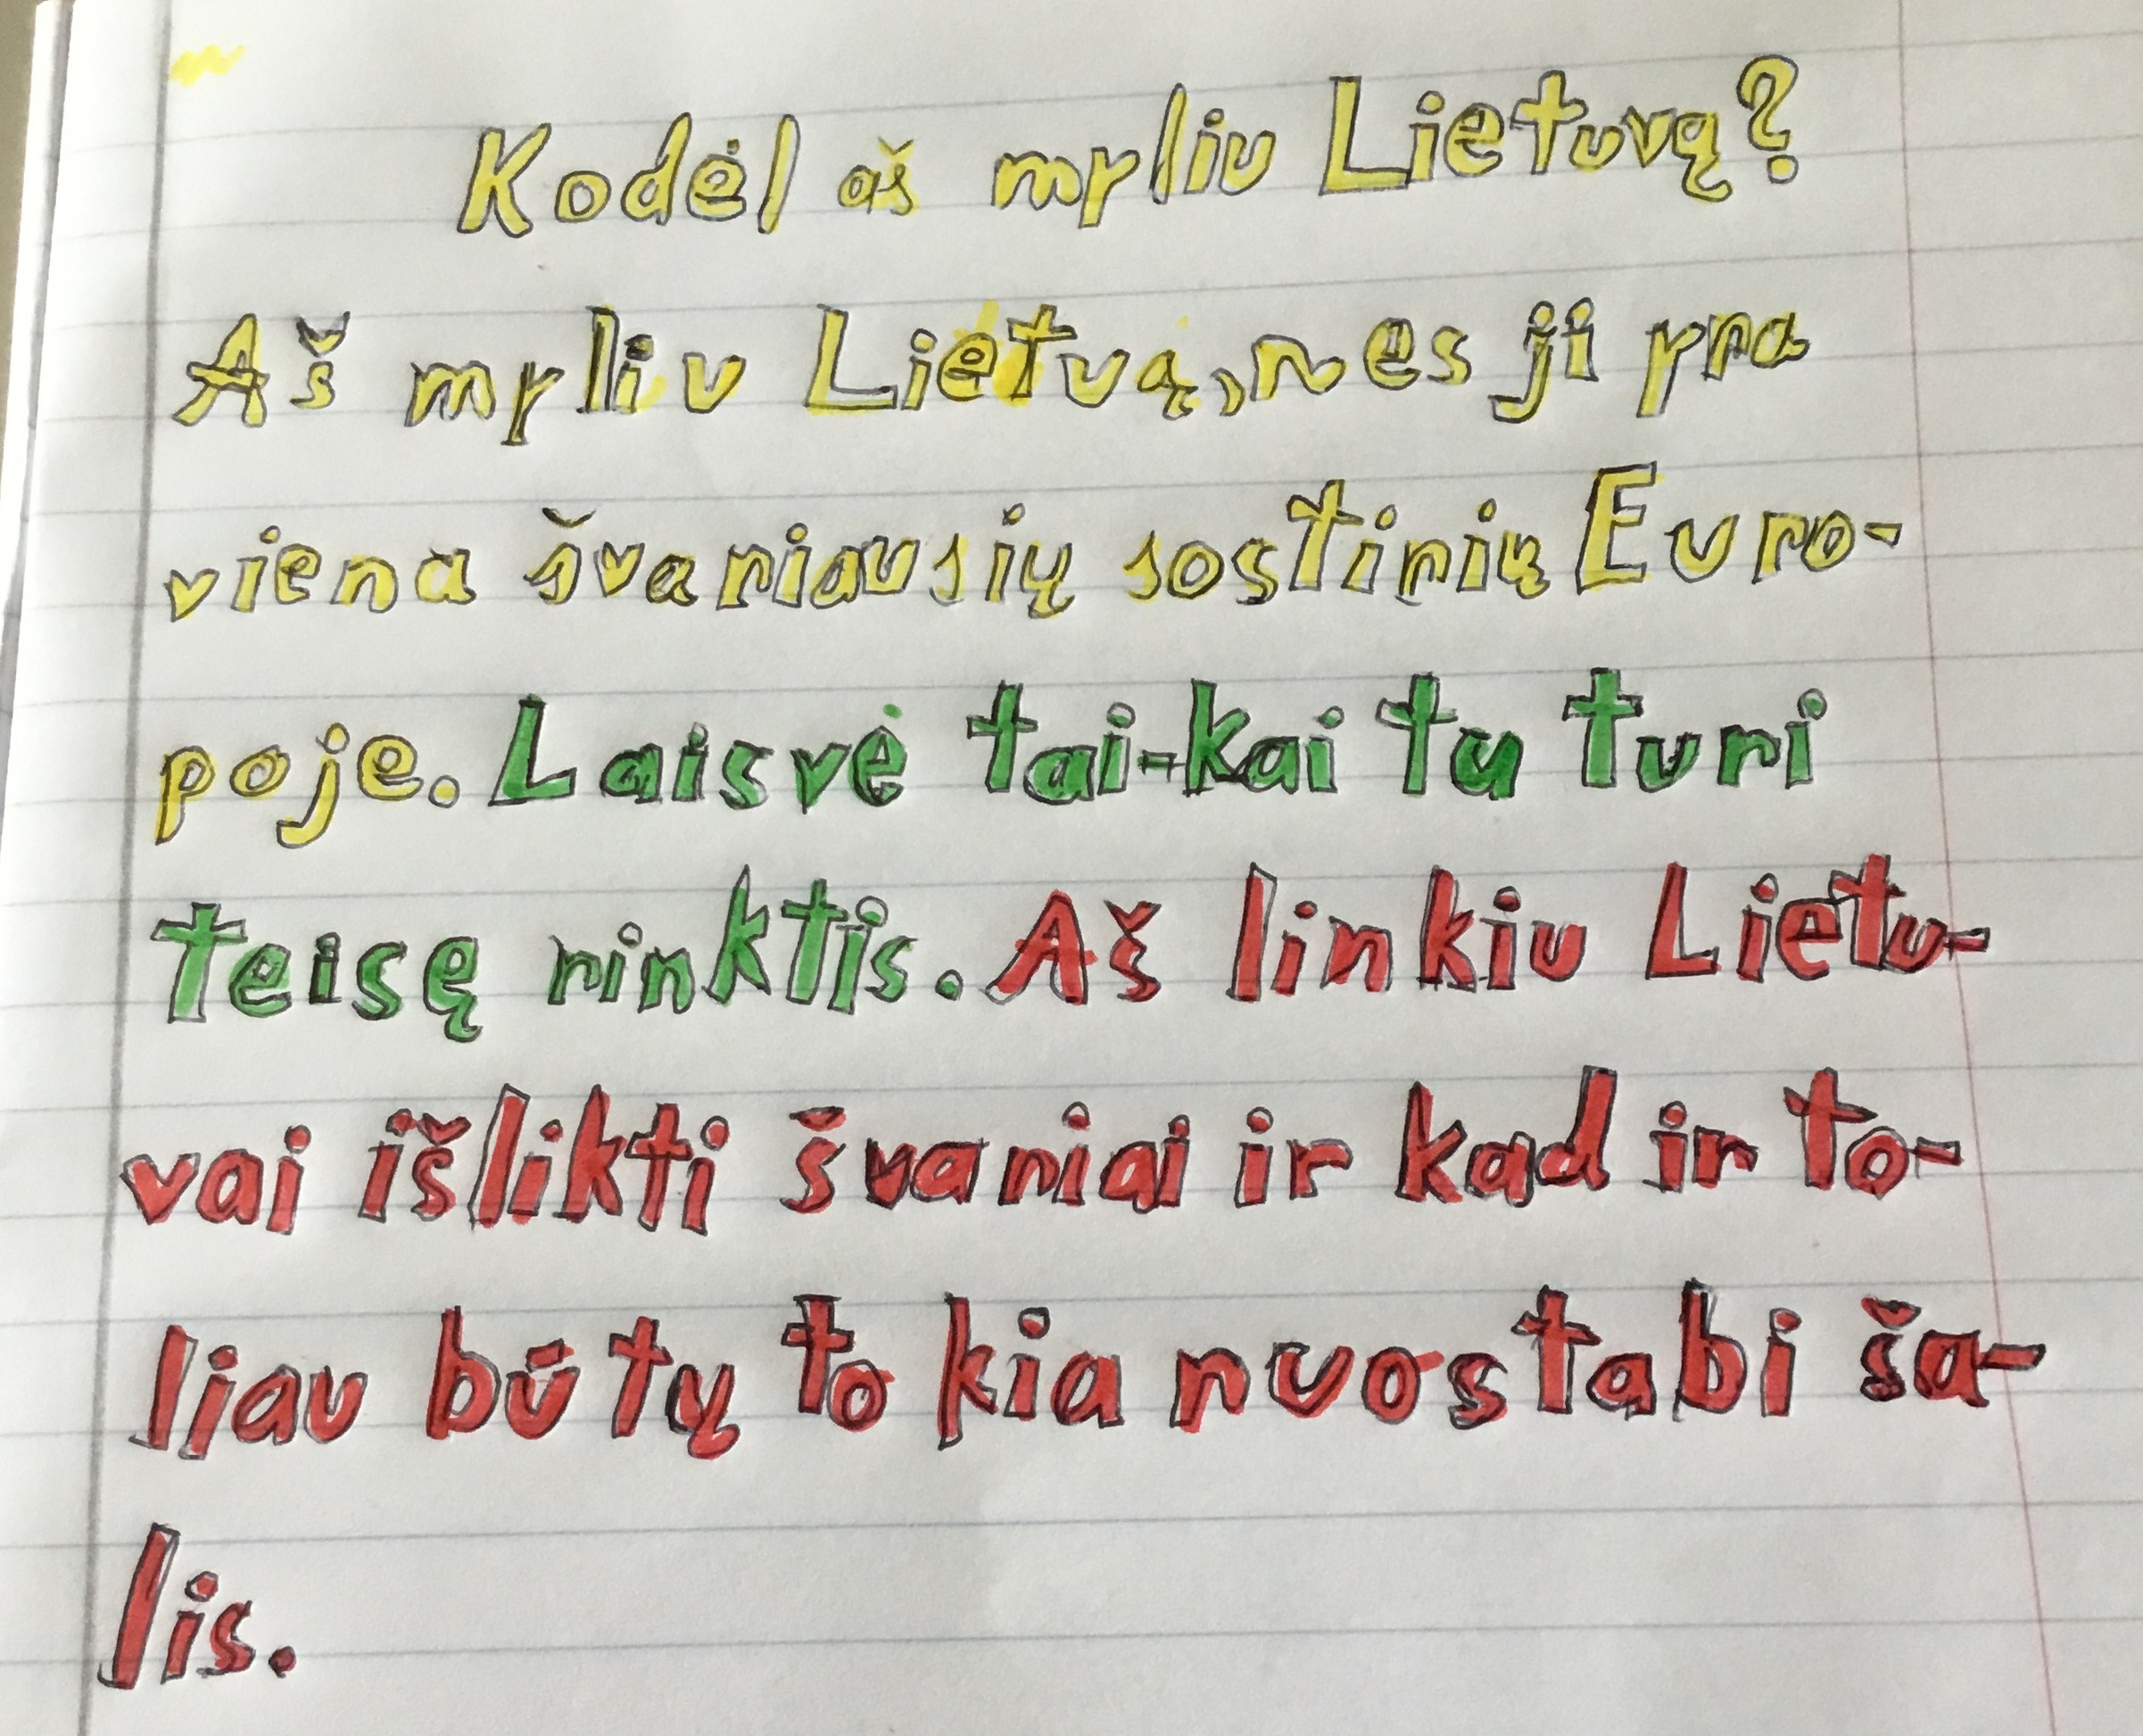 Kodėl aš mpliu Lietuvą?
Aš mpliu Lietvą, nes ji pra
viena švariausių sostinių Euro-
poje. Laisvė tai-kai tu turi
teisę rinktis. Aš linkiu Lietu-
vai išlikti švariai ir kad ir to-
liau būtų tokia nuostabi ša-
lis.